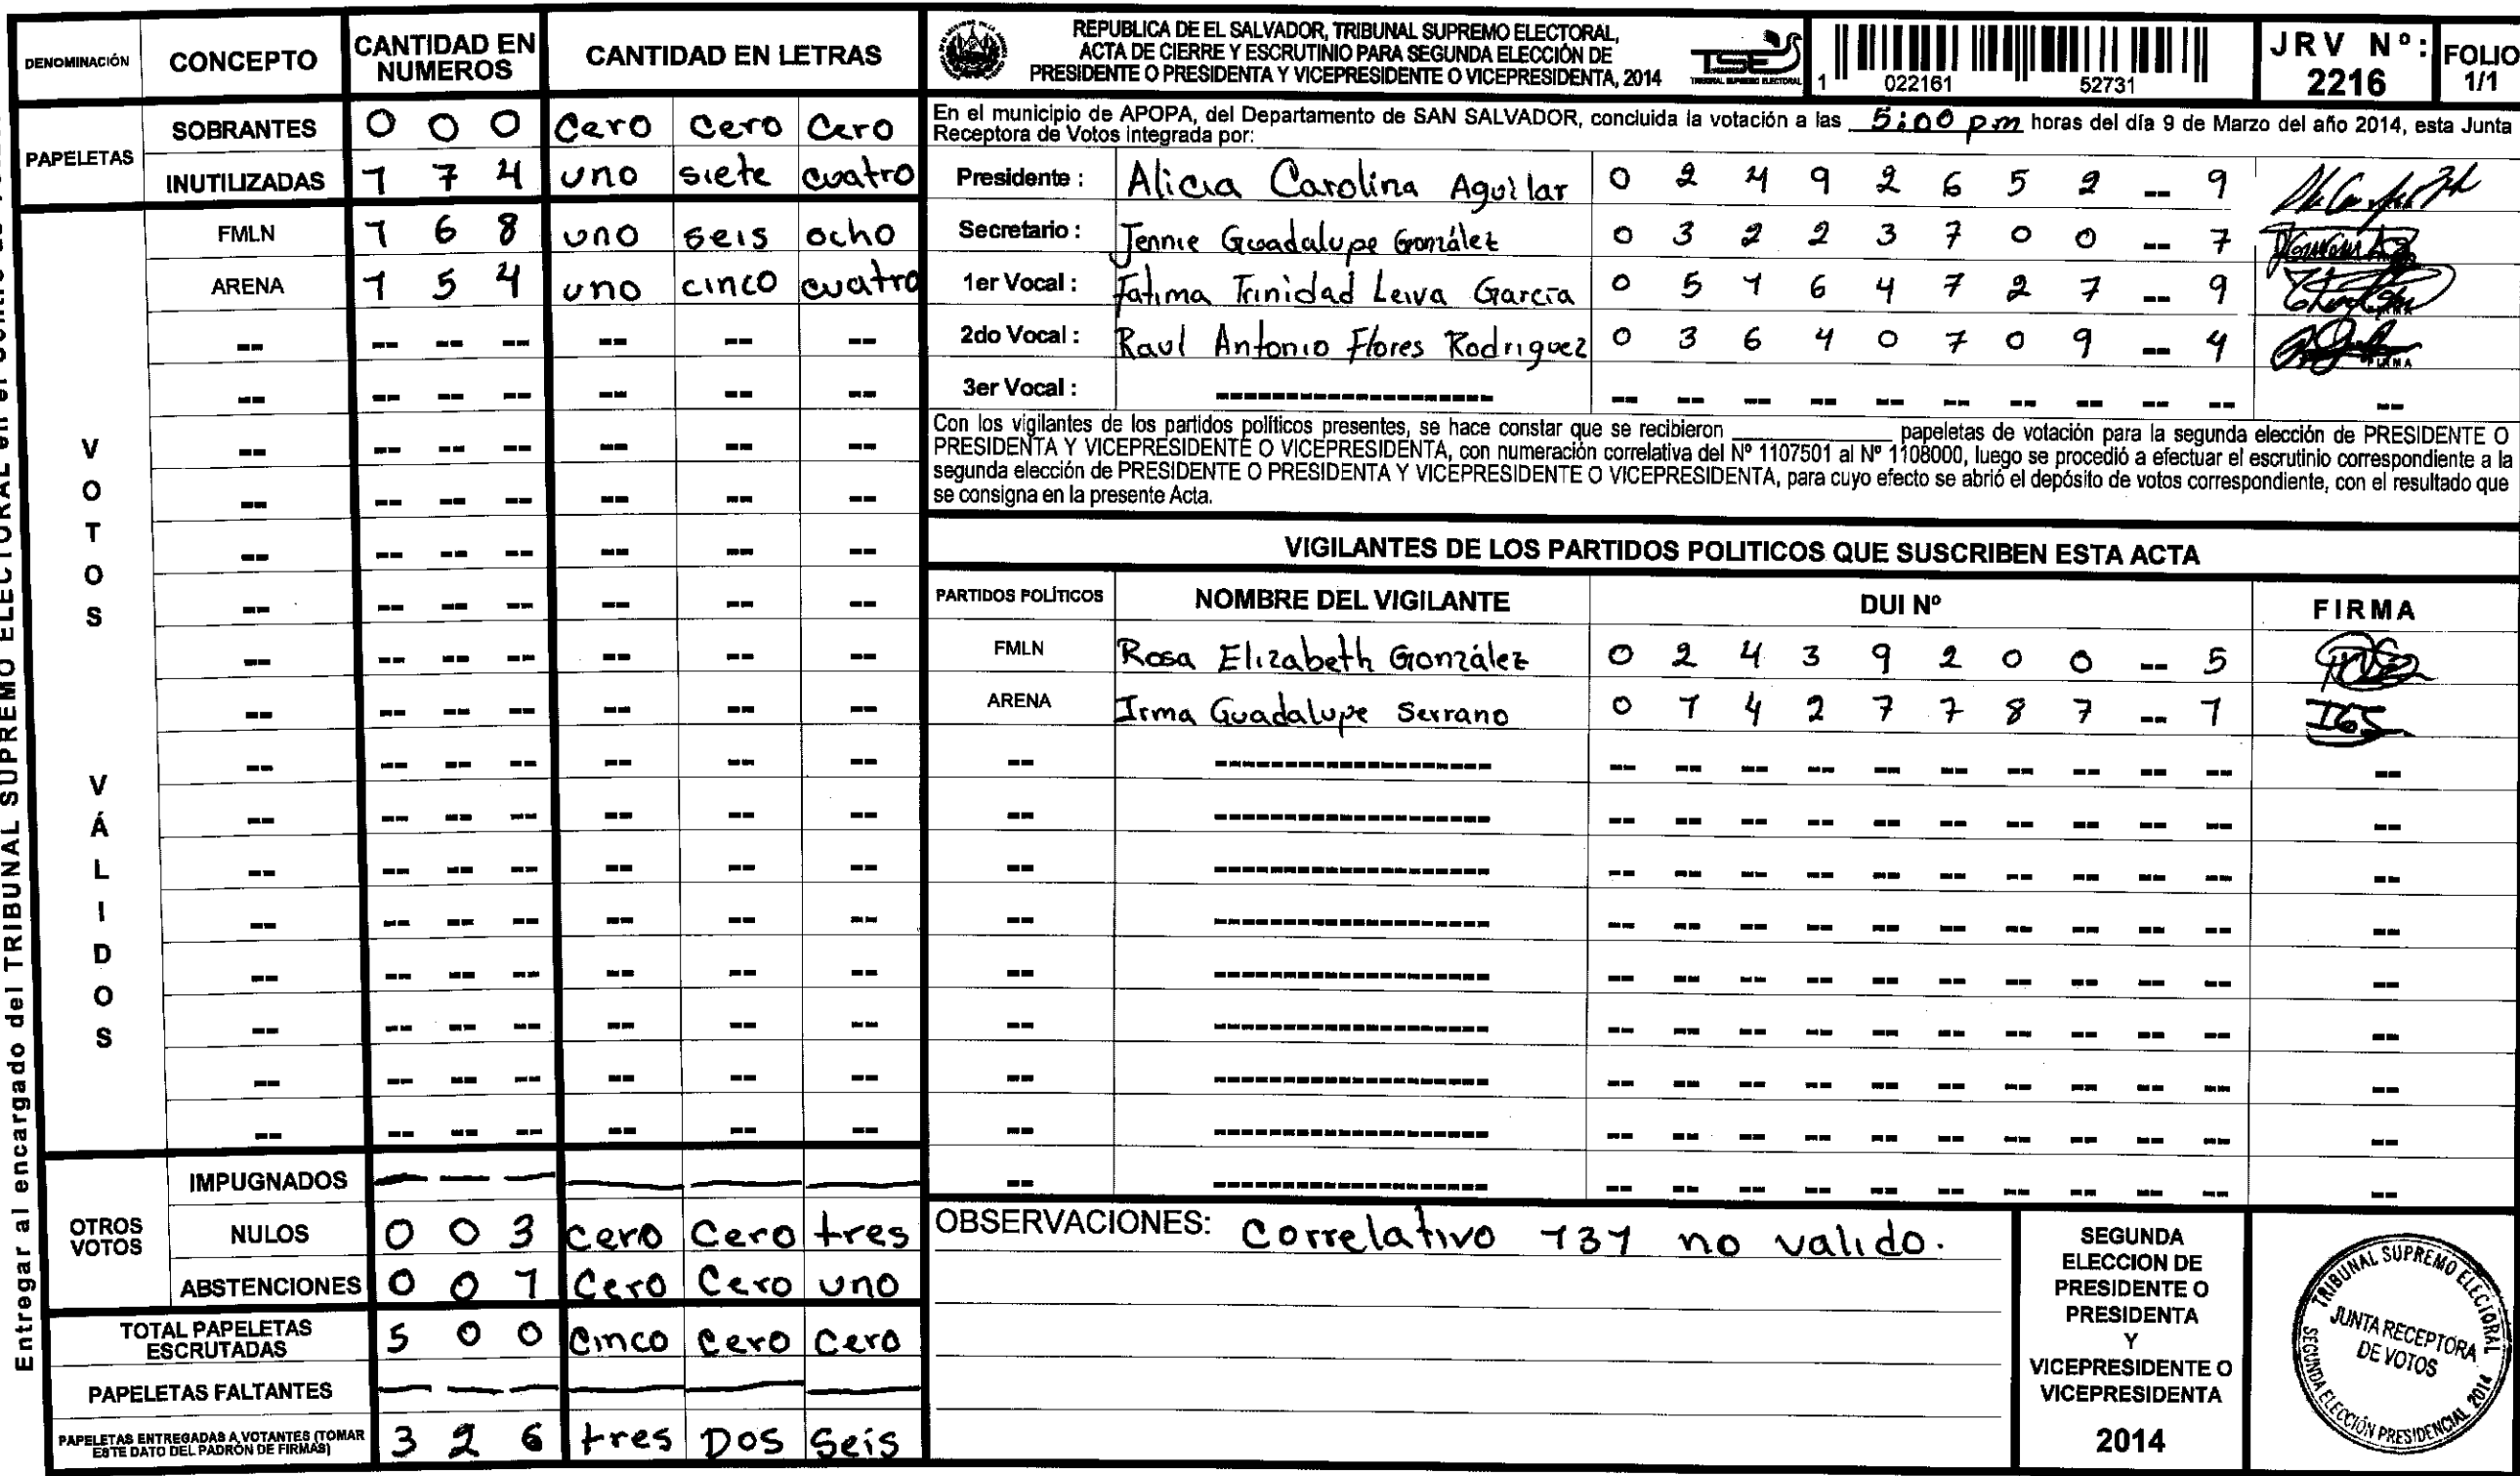 DENOMINACIÓN CONCEPTO CANTIDAD EN NUMEROS CANTIDAD EN LETRAS
PAPELETAS
SOBRANTES 0 0 0 Cero Cero Cero
INUTILIZADAS 1 7 4 uno siete cuatro
VOTOS VÁLIDOS
FMLN 1 6 8 uno seis ocho
ARENA 1 5 4 uno cinco cuatro
OTROS VOTOS
IMPUGNADOS — — — — — —
NULOS 0 0 3 cero Cero tres
ABSTENCIONES 0 0 1 Cero Cero uno
TOTAL PAPELETAS ESCRUTADAS 5 0 0 Cinco Cero Cero
PAPELETAS FALTANTES — — — — — —
PAPELETAS ENTREGADAS A VOTANTES (TOMAR ESTE DATO DEL PADRÓN DE FIRMAS) 3 2 6 tres DOS Seis
REPUBLICA DE EL SALVADOR, TRIBUNAL SUPREMO ELECTORAL,
ACTA DE CIERRE Y ESCRUTINIO PARA SEGUNDA ELECCIÓN DE
PRESIDENTE O PRESIDENTA Y VICEPRESIDENTE O VICEPRESIDENTA, 2014
TSE
TRIBUNAL SUPREMO ELECTORAL
1 022161 52731
JRV Nº: 2216
FOLIO 1/1
En el municipio de APOPA, del Departamento de SAN SALVADOR, concluida la votación a las 5:00 pm horas del día 9 de Marzo del año 2014, esta Junta
Receptora de Votos integrada por:
Presidente : Alicia Carolina Aguilar 0 2 4 9 2 6 5 2 -- 9
Secretario : Jennie Guadalupe González 0 3 2 2 3 7 0 0 -- 7
1er Vocal : Fatima Trinidad Leiva García 0 5 1 6 4 7 2 7 -- 9
2do Vocal : Raul Antonio Flores Rodriguez 0 3 6 4 0 7 0 9 -- 4
3er Vocal :
Con los vigilantes de los partidos políticos presentes, se hace constar que se recibieron ________ papeletas de votación para la segunda elección de PRESIDENTE O
PRESIDENTA Y VICEPRESIDENTE O VICEPRESIDENTA, con numeración correlativa del Nº 1107501 al Nº 1108000, luego se procedió a efectuar el escrutinio correspondiente a la
segunda elección de PRESIDENTE O PRESIDENTA Y VICEPRESIDENTE O VICEPRESIDENTA, para cuyo efecto se abrió el depósito de votos correspondiente, con el resultado que
se consigna en la presente Acta.
VIGILANTES DE LOS PARTIDOS POLITICOS QUE SUSCRIBEN ESTA ACTA
PARTIDOS POLÍTICOS NOMBRE DEL VIGILANTE DUI Nº FIRMA
FMLN Rosa Elizabeth González 0 2 4 3 9 2 0 0 -- 5
ARENA Irma Guadalupe Serrano 0 1 4 2 7 7 8 7 -- 1 IGS
OBSERVACIONES: Correlativo 131 no valido.
SEGUNDA
ELECCION DE
PRESIDENTE O
PRESIDENTA
Y
VICEPRESIDENTE O
VICEPRESIDENTA
2014
TRIBUNAL SUPREMO ELECTORAL
JUNTA RECEPTORA
DE VOTOS
SEGUNDA ELECCIÓN PRESIDENCIAL 2014
Entregar al encargado del TRIBUNAL SUPREMO ELECTORAL en el